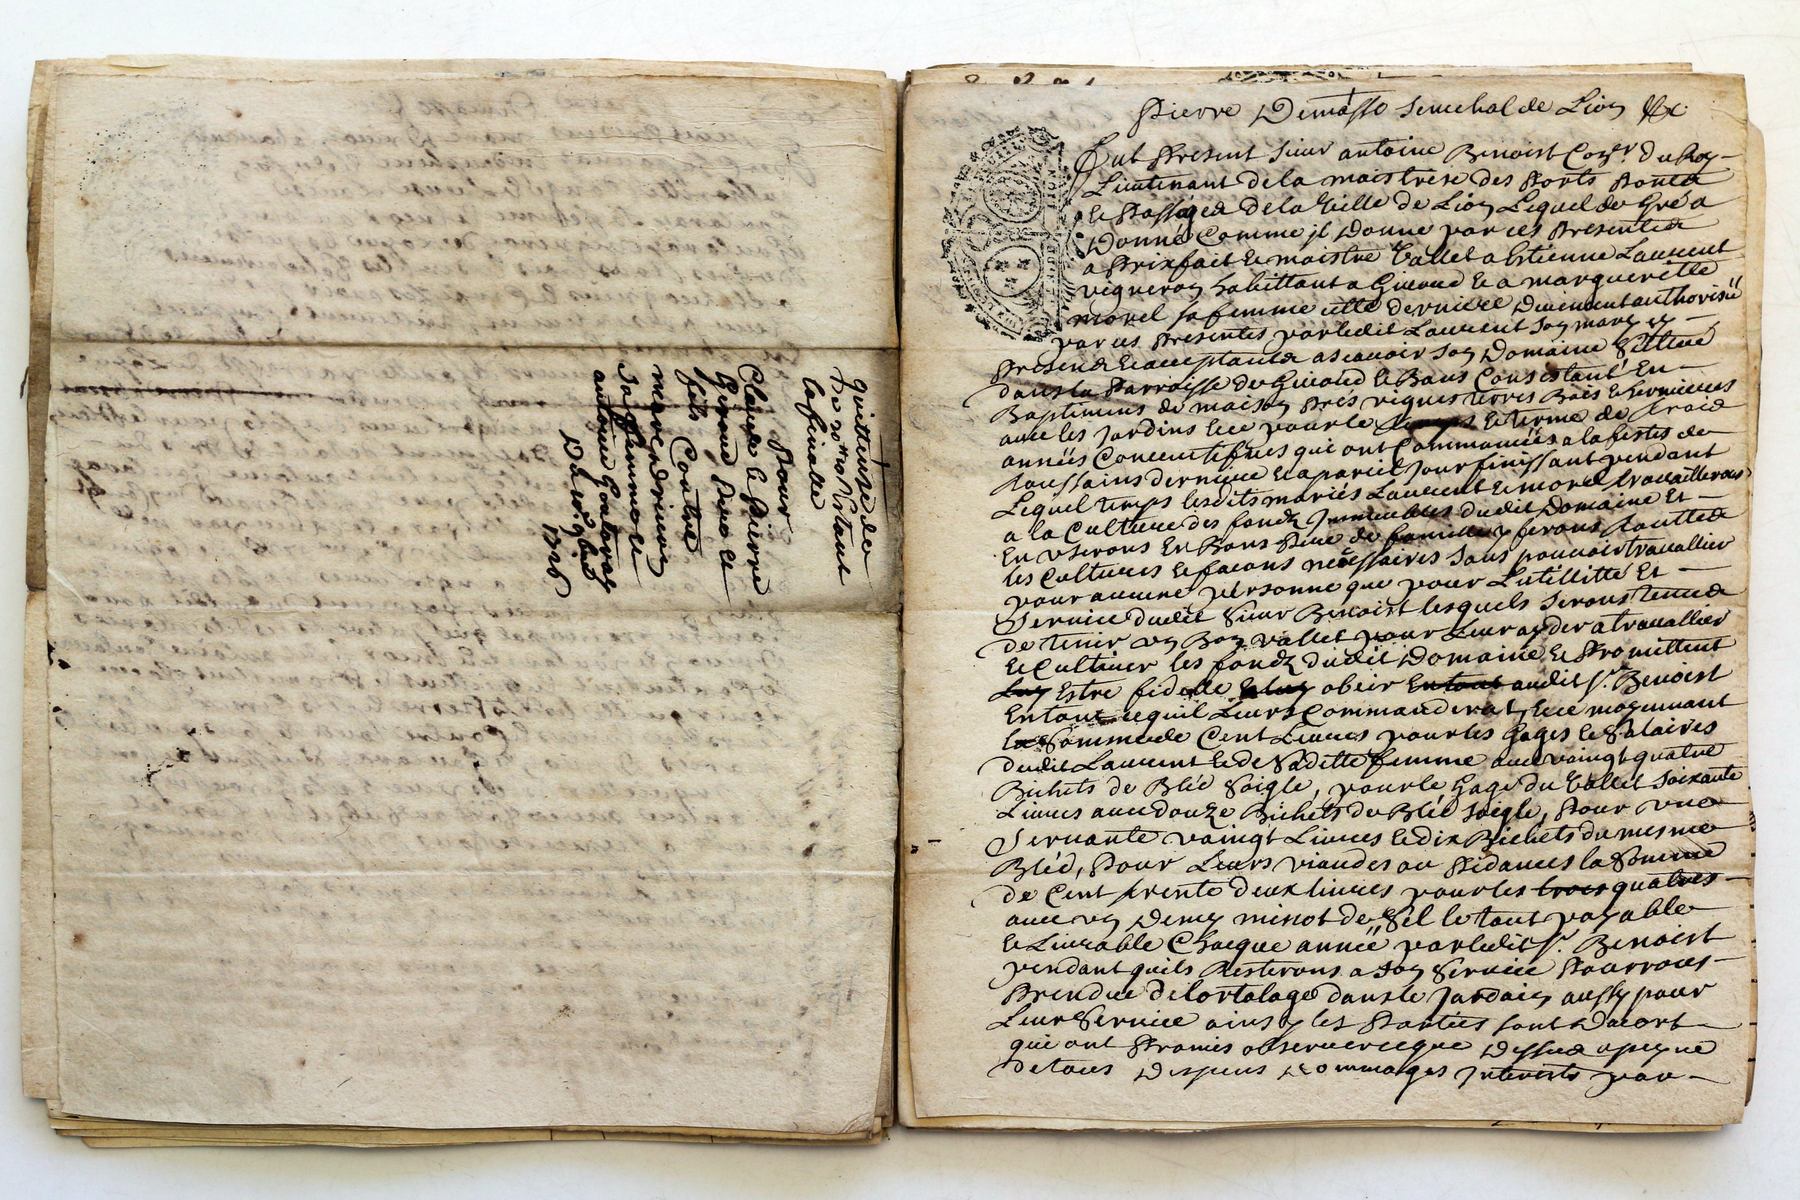 quittense de
lafinalle
Pour
Claude le Pierre
Giraud Pere et
fils Contre
sa femme et
1726
Pierre Demasso Senechal de Lion &c
fut Present sieur antoine Benoist Con.er du Roy
Lieutenant de la maistrise des Ports Ponts
et Passages de la Ville de Lion Lequel de Gré a
Donné Comme il Donne par ces Presentes
a Prixfait et maistre Vallet a Estienne Laurent
vigneron habittant a et a margueritte
morel sa femme cette derniere Duement authorisée
par ces presentes par ledit Laurent son mary
Presents et acceptants ascavoir son Domaine Scittué
dans la Parroisse de et Bans Consistant En
Baptimens de maison Prés vignes terres Bois et
avec les jardins pour le et terme de trois
années Consecutifves qui ont Commancées a la festes de
toussains derniere et a pareil jour finissant pendant
Lequel temps lesdits mariés Laurent et morel travailleront
a la Culture des fondz Immeubles dudit Domaine Et
En Userons En Bons Pere de famille y ferons touttes
les Cultures et facons nécessaires sans pouvoir travallier
pour aucune personne que pour L'utillitté Et
Service dudit Sieur Benoist lesquels Serons tenus
de tenir un Bon vallet pour Leur ayder a travallier
et Cultiver les fondz dudit Domaine et Promettent
Luy Estre fidelle obeir Entout audit sr. Benoist
Entout cequil Leurs Commanderat, moyennant
la Somme de Cent Livres pour les Gages et Salaires
dudit Laurent et de Saditte femme avec vaingt quatre
Bichets de Bléd Soigle, pour le Gage du Vallet soixante
Livres avec douze Bichets du Bléd soigle, Pour une
Servante vaingt Livres et dix Bichets du mesme
Bléd, Pour Leurs viandes ou Pidances la Somme
de Cent trente deux livres pour les trois quatres
avec un Demy minot de Sel le tout payable
et Livrable Chaque année par ledit sr. Benoist
pendant quils Resterons a son Service Pourrons
Prendre de lortolage dans le jardain aussy pour
Leur Service ainsy les Parties sont Dacort
qui ont Promis observer ceque Dessus a peyne
de tous Despens Dommages Interests par